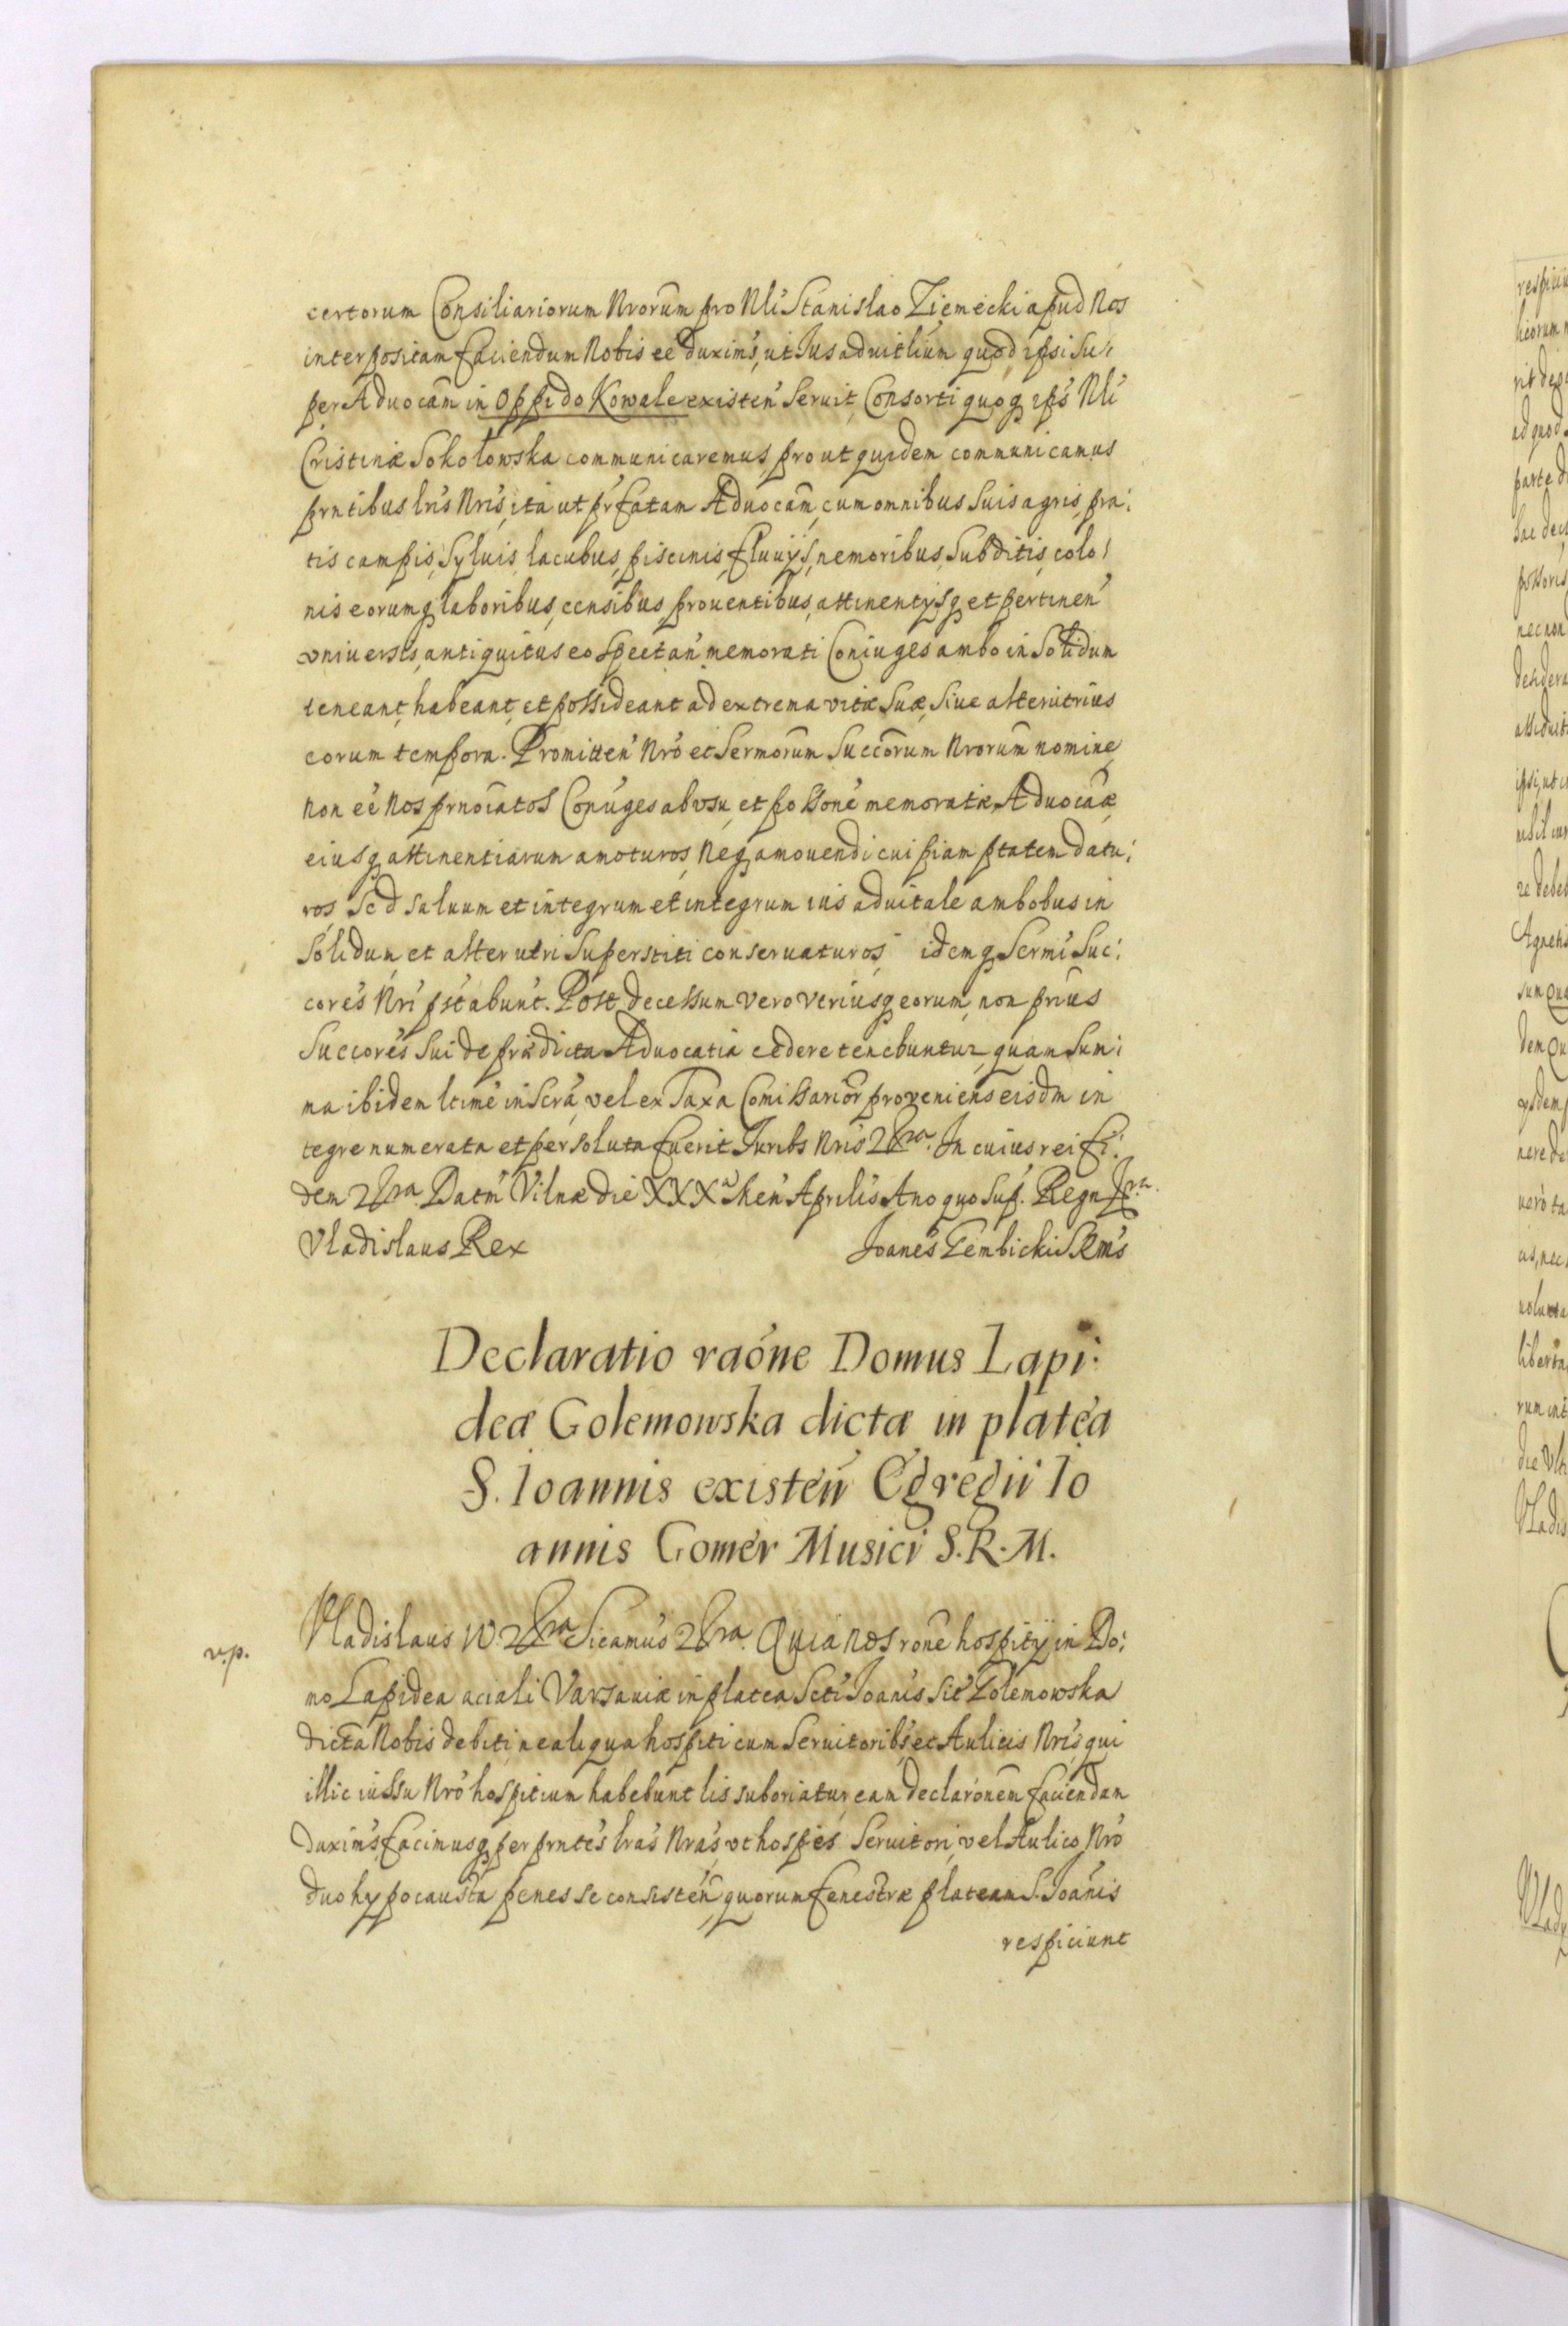 certorum Consiliariorum Nrorum pro Nli Stanislao Ziemecki apud Nos
interpositam faciendum Nobis eē duxims, ut Ius advitlium quod ipsi Su,
per Aduocam̄ in Oppido Kowale existen̄ Seruit, Consorti quoq ips Nli
Cristinæ Sokołowska communicaremus, prout quidem communicamus
prntibus lris Nris, ita ut prfatam Aduocam̄, cum omnibus Suis agris, pra:
tis campis, Syluis, lacubus, piscinis, fluuijs, nemoribus, Subditis, colo:
nis eorumq laboribus, censibus, prouentibus, attinentijsq et pertinen̄
vniuersis, antiquitus eo spectan̄ memorati Coniuges ambo in Solidum
teneant, habeant, et possideant ad extrema vitæ Suæ, Siue alterutrius
eorum tempora. Promitten̄ Nro et Sermorum Succorum Nrorum nomine
non eē Nos prnoiatos Coniuges ab vsu, et possone memoratæ Aduocaæ
eiusq attinentiarum amoturos, Neq amouendi cuipiam ptatem datu:
ros, Sed saluum et integrum et integrum ius aduitale ambobus in
Solidum et alterutri Superstiti conseruaturos, idemq Sermi Suc:
cores Nri pstabunt. Post decessum vero vtriusq eorum, non prius
Succores Sui de prædicta Aduocatia cedere tenebuntur, quam Sum:
ma ibidem ltime inscra, vel ex Taxa Comissarior proveniens eisdm in
tegre numerata et persoluta fuerit Juribs Nris 2bra. In cuius rei fi:
dem 2bra. Datm Vilnæ die XXX Men Aprilis Ano quo sup. Regn
Vladislaus Rex Joanes Gembicki SRMs
Declaratio raone Domus Lapi:
deæ Golemowska dictæ in platea
S. Ioannis existen̄ Egregii Io
annis Gomer Musici S.R.M.
v.p.
Vladislaus IV. 2bra Sicamus 2bra. Quia Nos rone hospitij in Do:
mo Lapidea aciali Varsauiæ in platea Scti Joanis Sit Golemowska
dicta Nobis debiti, ne aliqua hospiti cum Seruitoribs et Aulicis Nris, qui
illic iussu Nro hospitium habebunt lis suboriatur, eam declaronem faciendam
duxims, facimusq per prntes lras Nras, vt hospes Seruitori, vel Aulico Nro
duo hypocausta penes se consisten̄, quorum fenestræ plateam S. Joanis
respiciunt